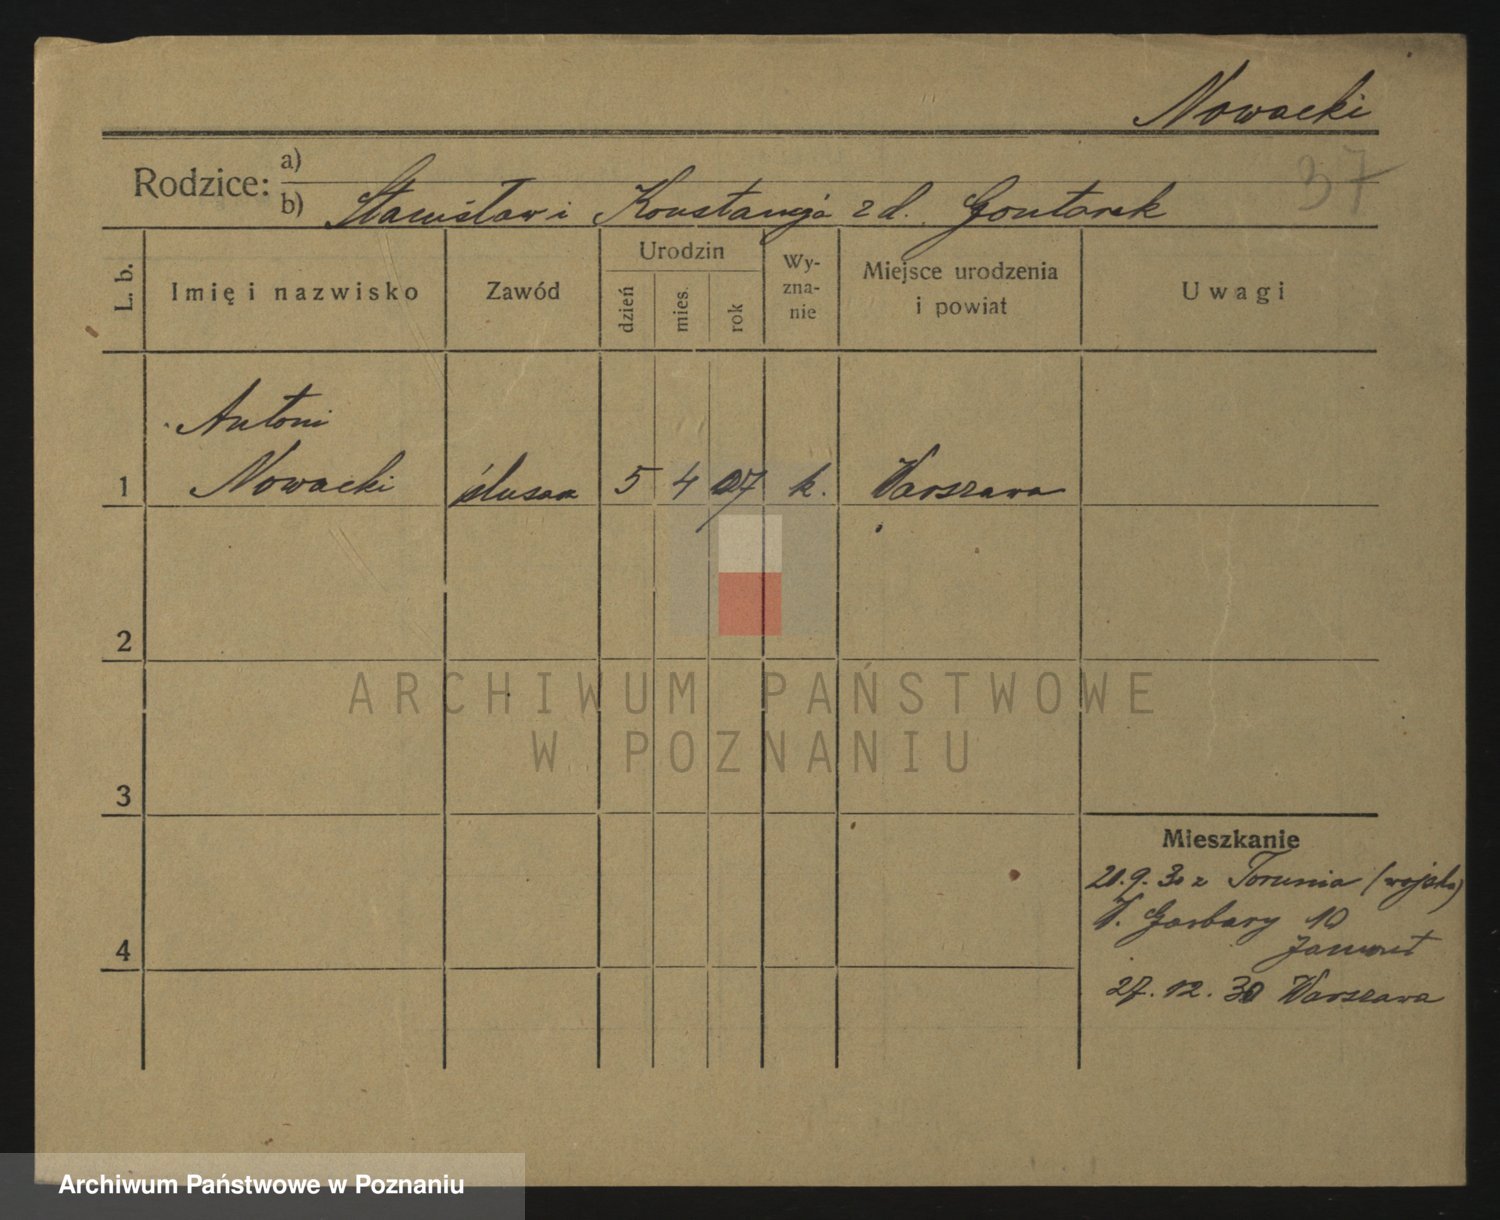 Nowacki
37
Rodzice: a)
b) Stanisław i Konstancja z d. Gontarek
L. b.
Imię i nazwisko
Zawód
Urodzin
dzień
mies.
rok
Wy-
zna-
nie
Miejsce urodzenia
i powiat
Uwagi
Antoni
1 Nowacki ślusarz 5 4 07 k. Warszawa
2
ARCHIWUM PAŃSTWOWE
W POZNANIU
3
Mieszkanie
20.9.30 z Torunia (wojsko)
W. Garbary 10
4
27.12.30 Warszawa
Archiwum Państwowe w Poznaniu